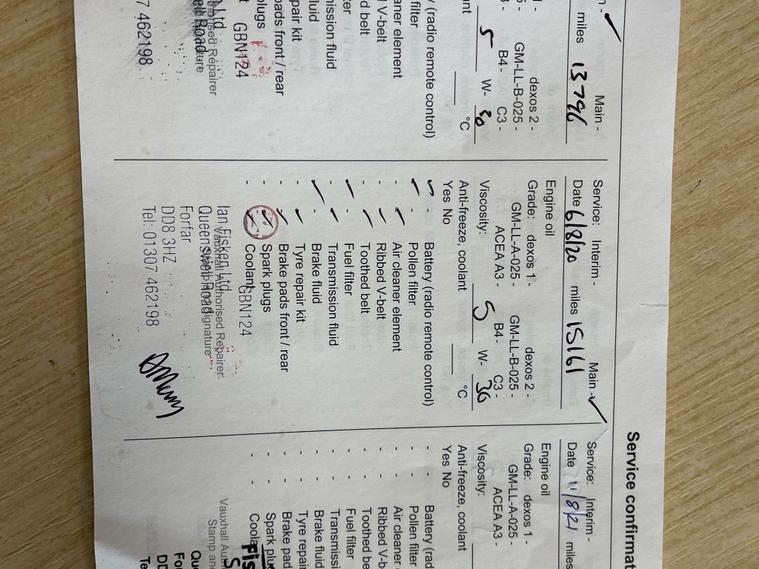 Service confirmat
Main - ✓
miles 13796
dexos 2 -
GM-LL-B-025 -
B4 - C3 -
5 W- 30
°C
(radio remote control)
filter
aner element
V-belt
d belt
ter
mission fluid
luid
pair kit
pads front / rear
plugs
GBN124
Ltd
orised Repairer
Road
7 462198
Service: Interim - Main - ✓
Date 6/8/20 miles 15161
Engine oil
Grade: dexos 1 - dexos 2 -
GM-LL-A-025 - GM-LL-B-025 -
ACEA A3 - B4 - C3 -
Viscosity: 5 W- 30
Anti-freeze, coolant °C
Yes No
✓ - Battery (radio remote control)
✓ - Pollen filter
- ✓ Air cleaner element
- ✓ Ribbed V-belt
- ✓ Toothed belt
✓ - Fuel filter
- ✓ Transmission fluid
✓ - Brake fluid
- ✓ Tyre repair kit
- ✓ Brake pads front / rear
- ✓ Spark plugs
- ✓ Coolant GBN124
Ian Fisken Ltd
Vauxhall Authorised Repairer
Queenswell Road
Forfar
DD8 3HZ
Tel: 01307 462198
Service: Interim -
Date 11/8/21 miles
Engine oil
Grade: dexos 1 -
GM-LL-A-025 -
ACEA A3 -
Viscosity:
Anti-freeze, coolant
Yes No
- - Battery (rad
- - Pollen filter
- - Air cleaner
- - Ribbed V-be
- - Toothed be
- - Fuel filter
- - Transmissi
- - Brake fluid
- - Tyre repair
- - Brake pad
- - Spark plu
- - Coola
Fis
Vauxhall Aut
Stamp an
Qu
Fo
DD
Te